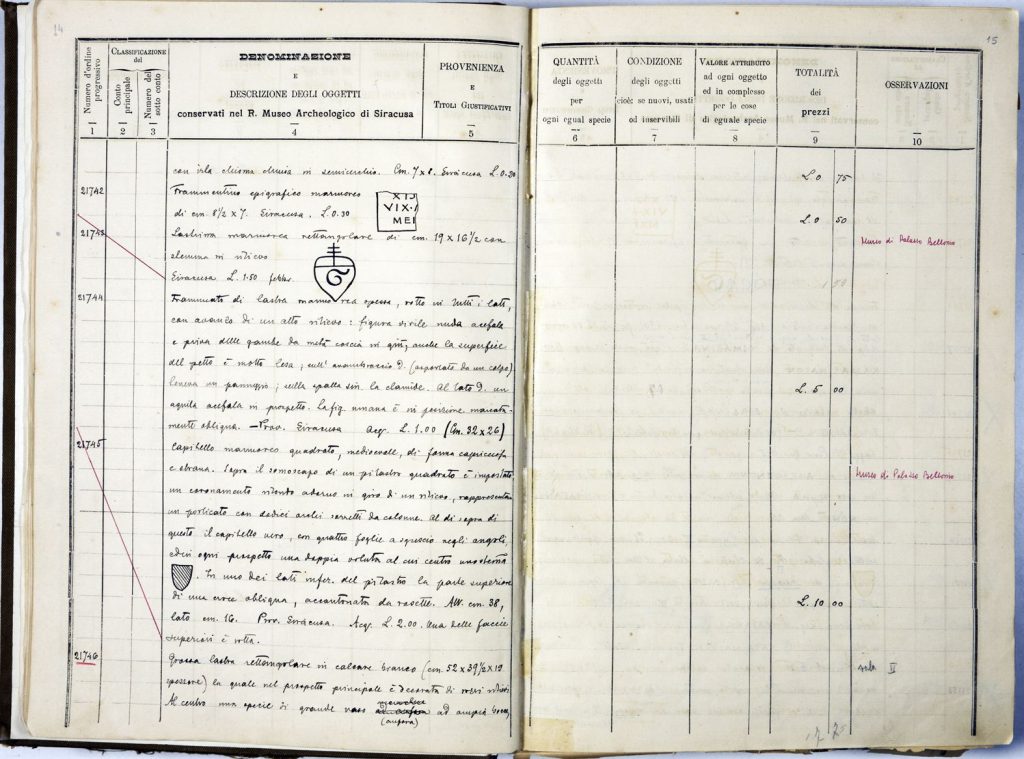 14
Numero d'ordine progressivo
CLASSIFICAZIONE del
Conto principale
Numero del sotto conto
DENOMINAZIONE
E
DESCRIZIONE DEGLI OGGETTI
conservati nel R. Museo Archeologico di Siracusa
PROVENIENZA
E
TITOLI GIUSTIFICATIVI
1 2 3 4 5
in semicerchio. Cm. 7 x 8. Siracusa L. 0.30
21742 Frammentino epigrafico marmoreo
di cm. 8 1/2 x 7. Siracusa. L. 0.30
XIJ
VIX·A
MEI
21743 Lastrina marmorea rettangolare di cm. 19 x 16 1/2 con
stemma in rilievo
Siracusa L. 1.50
21744 Frammento di lastra marmorea spessa, rotto in tutti i lati,
con avanzo di un alto rilievo: figura virile nuda acefala
e priva delle gambe da metà coscia in giù; anche la superficie
del petto è molto lesa; sull'avambraccio d. (asportato da un colpo)
teneva un panneggio; sulla spalla sin. la clamide. Al lato d. un
aquila acefala in prospetto. La fig. umana è in posizione marcata-
mente obliqua. — Prov. Siracusa Acq. L. 1.00 (Cm. 32 x 26)
21745 Capitello marmoreo quadrato, medioevale, di forma capricciosa
e strana. Sopra il sommoscapo di un pilastro quadrato è impostato
un coronamento rotondo adorno in giro di un rilievo, rappresentan
un porticato con dodici archi sorretti da colonne. Al di sopra di
questo il capitello vero, con quattro foglie a sguscio negli angoli,
ed in ogni prospetto una doppia voluta al cui centro uno stemma
. In uno dei lati infer. del pilastro la parte superiore
di una croce obliqua, accantonata da rosette. Alt. cm. 38,
lato cm. 16. Prov. Siracusa. Acq. L. 2.00. Una delle faccie
superiori è rotta.
21746 Grossa lastra rettangolare in calcare bianco (cm. 52 x 39 1/2 x 19
spessore) la quale nel prospetto principale è decorata di rilievi
Al centro una specie di grande vaso ad ampia
15
QUANTITÀ
degli oggetti
per
ogni egual specie
6
CONDIZIONE
degli oggetti
cioè: se nuovi, usati
od inservibili
7
VALORE ATTRIBUITO
ad ogni oggetto
ed in complesso
per le cose
di eguale specie
8
TOTALITÀ
dei
prezzi
9
OSSERVAZIONI
10
L. 0 75
L. 0 50
Museo di Palazzo Bellomo
1 50
L. 5 00
Museo di Palazzo Bellomo
L. 10 00
sala II
17 75